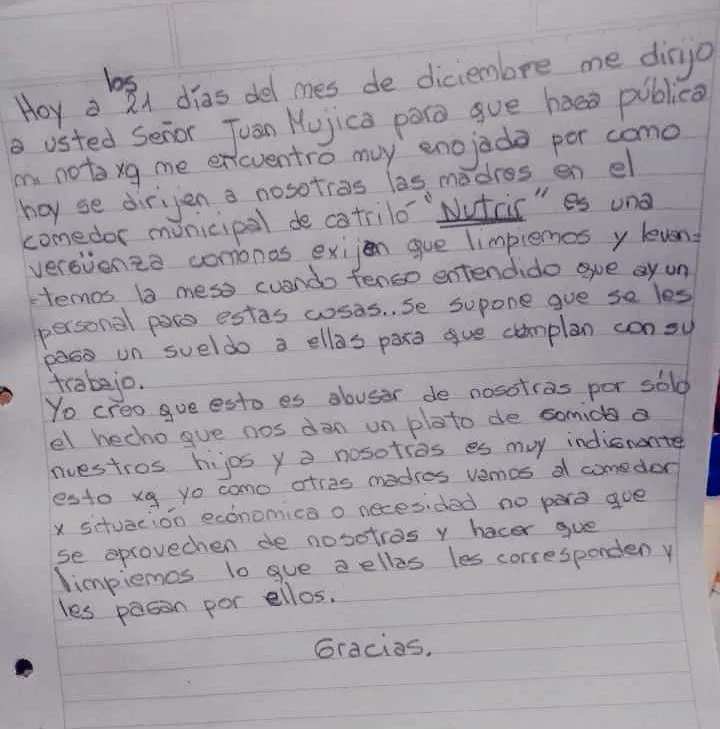 Hoy a los 21 días del mes de diciembre me dirijo
a usted Señor Juan Mujica para que haga pública
mi nota xq me encuentro muy enojada por como
hoy se dirijen a nosotras las madres en el
comedor municipal de catriló "Nutrir" es una
vergüenza comonos exijen que limpiemos y levan=
=temos la mesa cuando tengo entendido que ay un
personal para estas cosas.. se supone que se les
paga un sueldo a ellas para que cumplan con su
trabajo.
Yo creo que esto es abusar de nosotras por sólo
el hecho que nos dan un plato de comida a
nuestros hijos y a nosotras es muy indignante
esto xq yo como otras madres vamos al comedor
x situación económica o necesidad no para que
se aprovechen de nosotras y hacer que
limpiemos lo que a ellas les corresponden y
les pagan por ellos.
Gracias.